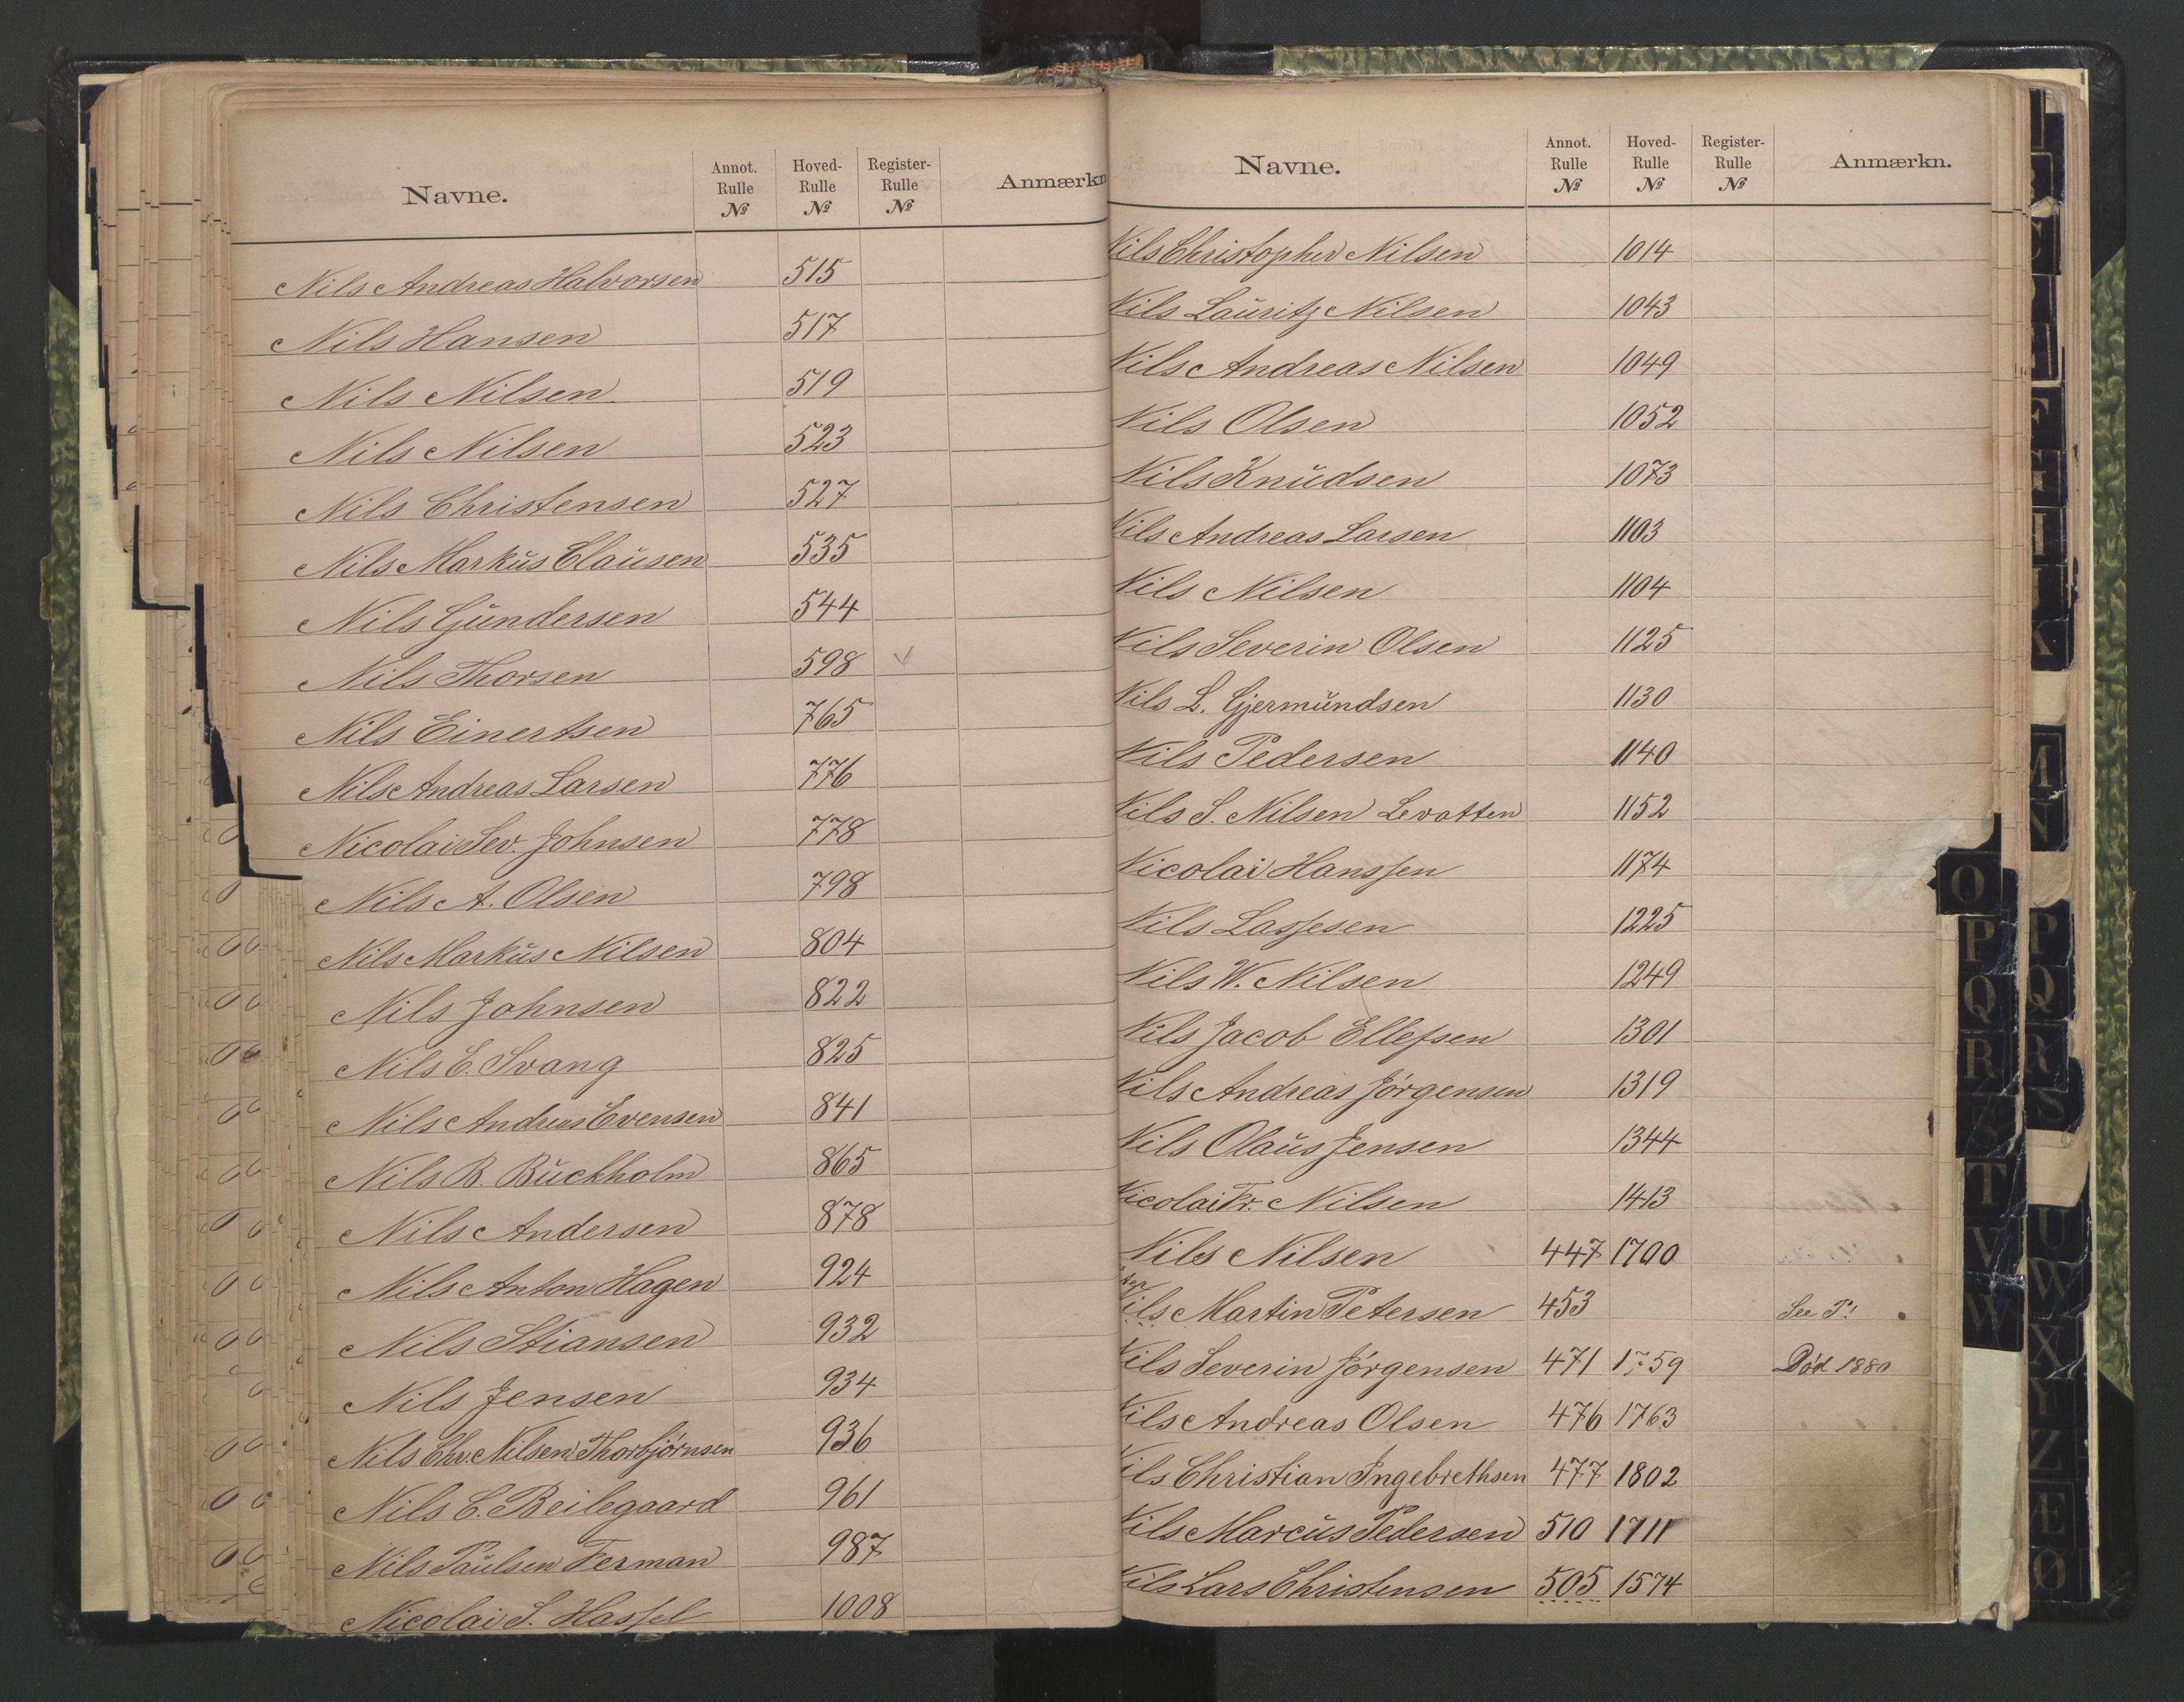 Navne. Annot. Rulle № Hoved-Rulle № Register-Rulle № Anmærkn
Nils Andreas Halvorsen 515
Nils Hansen 517
Nils Nilsen 519
Nils Nilsen 523
Nils Christensen 527
Nils Markus Clausen 535
Nils Gundersen 544
Nils Thorsen 598 ✓
Nils Einertsen 765
Nils Andreas Larsen 776
Nicolai Sev. Johnsen 778
Nils A. Olsen 798
Nils Markus Nilsen 804
Nils Johnsen 822
Nils E. Svang 825
Nils Andreas Evensen 841
Nils B. Buckholm 865
Nils Andersen 878
Nils Anton Hagen 924
Nils Stiansen 932
Nils Jensen 934
Nils Chr. Nilsen Thorbjörnsen 936
Nils C. Beilegaard 961
Nils Paulsen Ferman 987
Nicolai S. Hassel 1008
Navne. Annot. Rulle № Hoved-Rulle № Register-Rulle № Anmærkn.
Nils Christopher Nilsen 1014
Nils Lauritz Nilsen 1043
Nils Andreas Nilsen 1049
Nils Olsen 1052
Nils Knudsen 1073
Nils Andreas Larsen 1103
Nils Nilsen 1104
Nils Severin Olsen 1125
Nils L. Gjermundsen 1130
Nils Pedersen 1140
Nils S. Nilsen Levatten 1152
Nicolai Hanssen 1174
Nils Lassesen 1225
Nils W. Nilsen 1249
Nils Jacob Ellefsen 1301
Nils Andreas Jörgensen 1319
Nils Olaus Jensen 1344
Nicolai Fr. Nilsen 1413
Nils Nilsen 447 1700
Nils Martin Petersen 453 See P!
Nils Severin Jörgensen 471 1759 Död 1880
Nils Andreas Olsen 476 1763
Nils Christian Ingebrethsen 477 1802
Nils Marcus Pedersen 510 1711
Nils Lars Christensen 505 1574
O
P
Q
R
S
T
V
W
K
M
N
P
Q
R
S
U
W
X
Y
Z
Æ
Ø